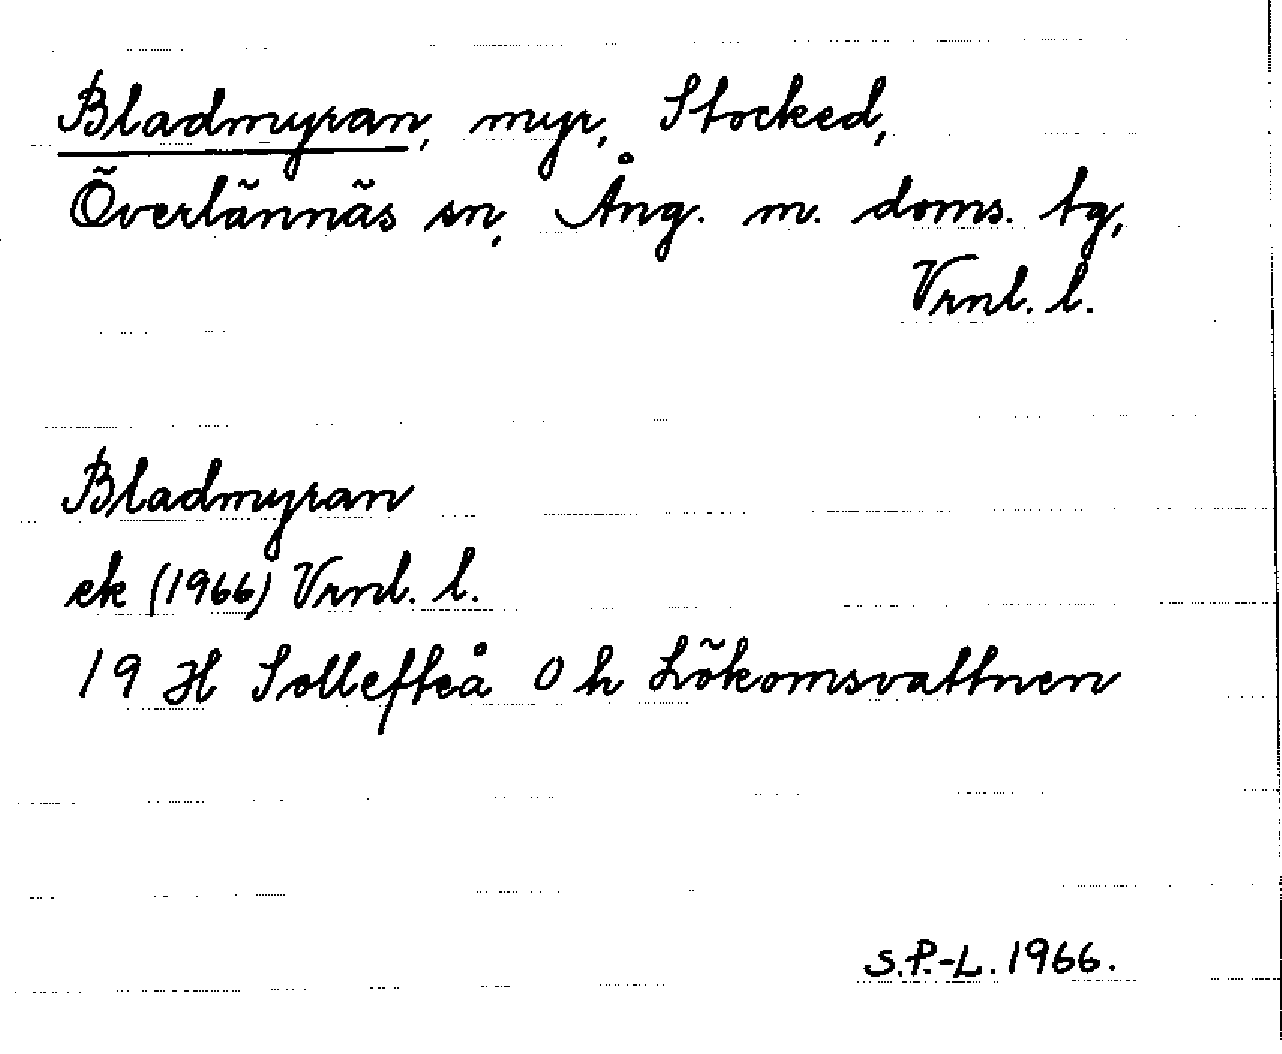 Bladmyran, myr, Stocked,
Överlännäs sn, Ång. m. doms. tg,
Vrnl. l.
Bladmyran
ek (1966) Vrnl. l.
19 H Sollefteå 0 h Lökomsvattnen
S.P.-L. 1966.